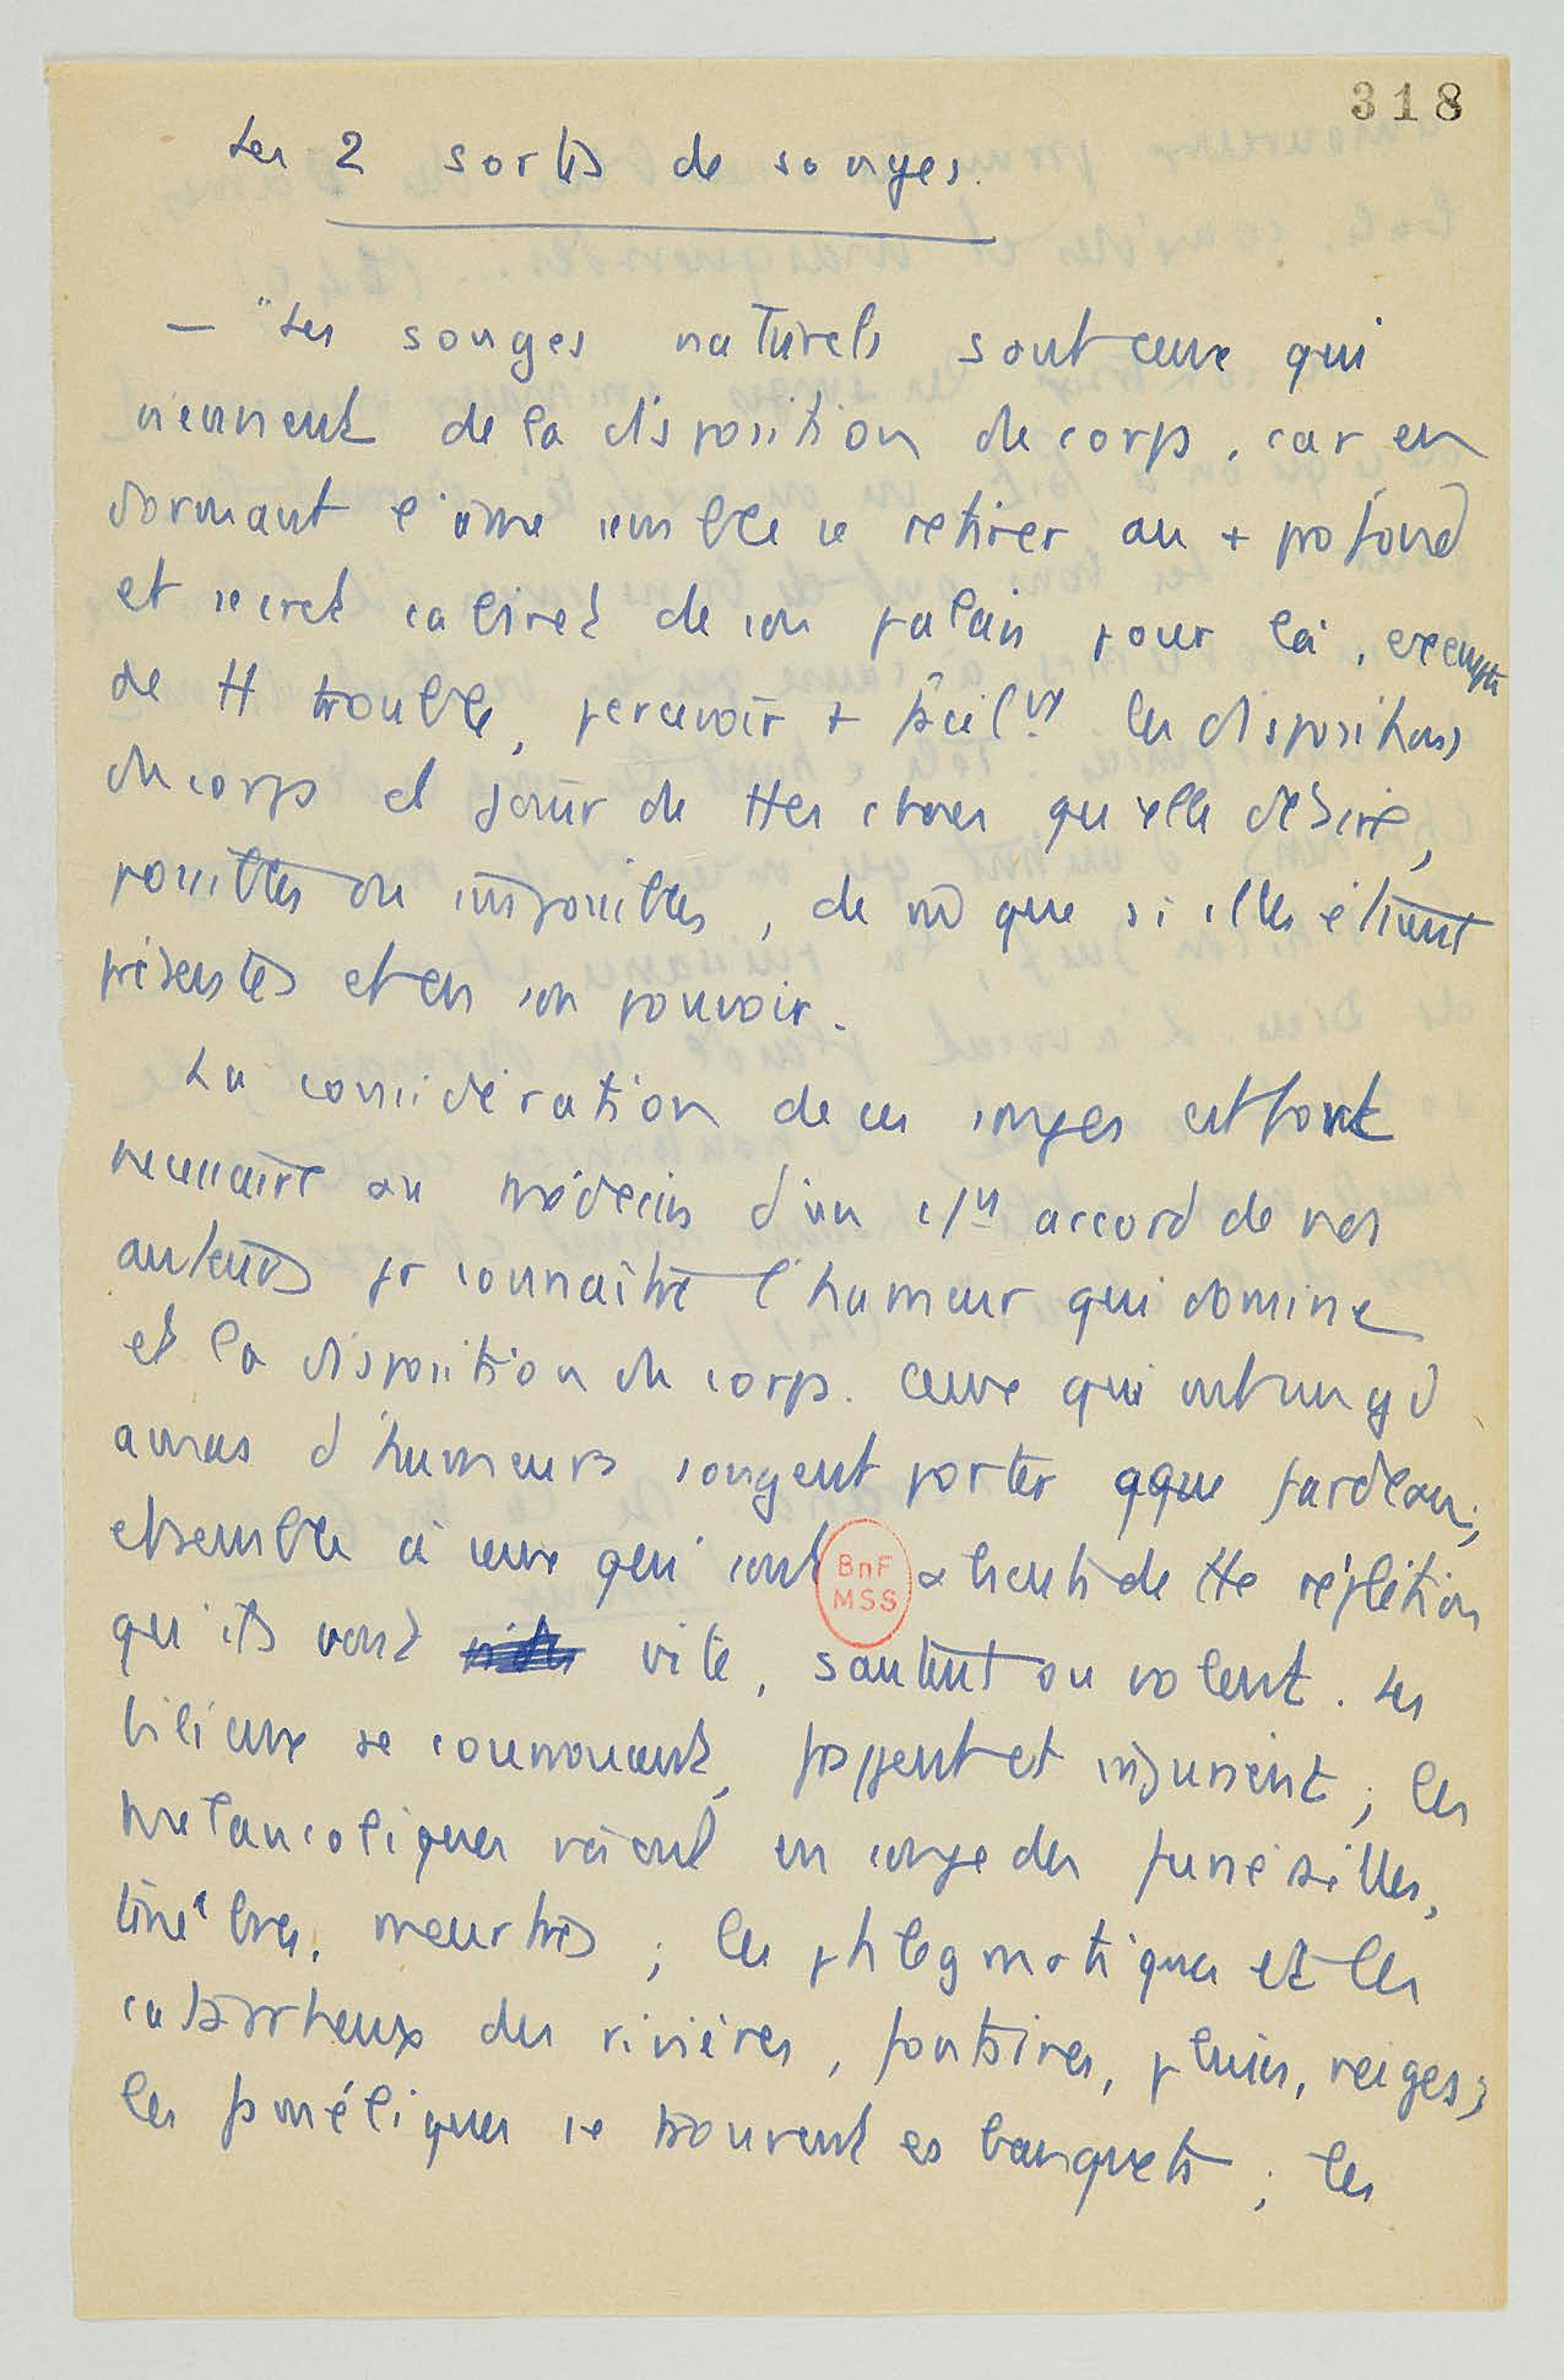 318
Les 2 sortes de songes.
— "Les songes naturels sont ceux qui
viennent de la disposition du corps, car en
dormant l'âme semble se retirer au + profond
et secret cabinet de son palais pour là, exempte
de tt trouble, percevoir + facilmt les dispositions
du corps et jouir de ttes choses qu'elle désire,
possibles ou impossibles, de m̂ que si elles étaient
présentes et en son pouvoir.
La considération de ces songes est fort
necessaire au médecin d'un c/un accord de nos
auteurs pr connaître l'humeur qui domine
et la disposition du corps. Ceux qui ont un gd
amas d'humeurs songent porter qque fardeau;
et semble à ceux qui sont BnF MSS absents de tte réplétion
qu'ils vont vite, sautent ou volent. Les
bilieux se courroucent, frappent et injurient; les
melancoliques voient en songe des funérailles,
ténèbres, meurtres; les phlegmatiques et les
catarrheux des rivières, fontaines, pluies, neiges;
les faméliques se trouvent es banquets; les